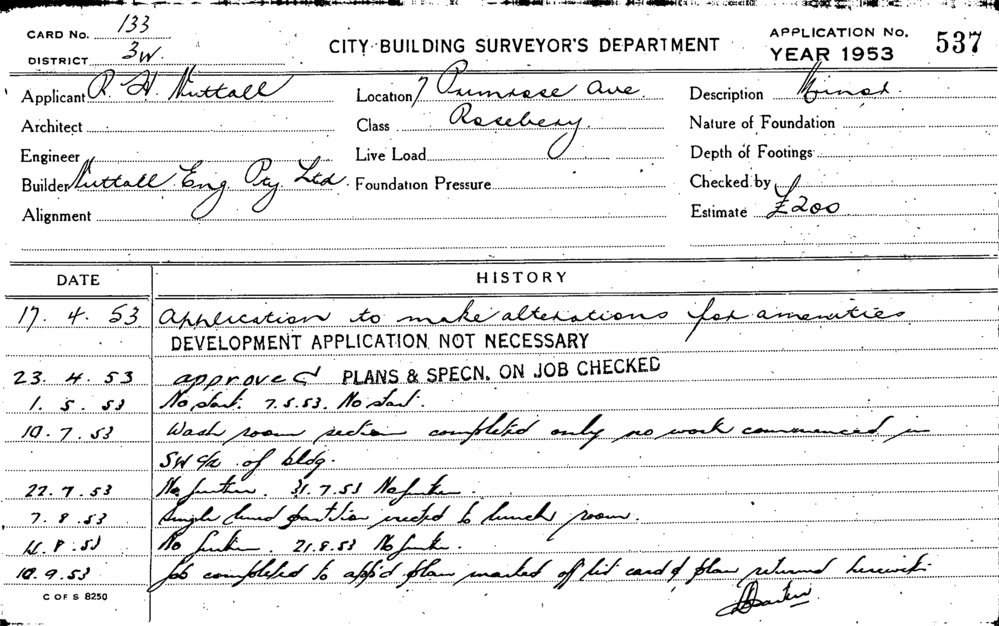 CARD No. 133
DISTRICT 3W.
CITY BUILDING SURVEYOR'S DEPARTMENT
APPLICATION No. 537
YEAR 1953
Applicant R. H. Nuttall
Location 7 Primrose Ave.
Description Minor.
Architect
Class Rosebery.
Nature of Foundation
Engineer
Live Load
Depth of Footings
Builder Nuttall Eng. Pty. Ltd.
Foundation Pressure
Checked by
Alignment
Estimate £200
DATE HISTORY
17. 4. 53 Application to make alterations for amenities
DEVELOPMENT APPLICATION NOT NECESSARY
23. 4. 53 approved PLANS & SPECN. ON JOB CHECKED
1. 5. 53 No start. 7.5.53. No start.
10. 7. 53 Wash room section completed only no work commenced in
SW of bldg.
22. 7. 53 No further. 31.7.53 No further.
7. 8. 53 Single lined partition erected to lunch room.
14. 8. 53 No further. 21.8.53 No further.
10. 9. 53 Job completed to app'd plan marked of list card & plan returned herewith.
C OF S 8250